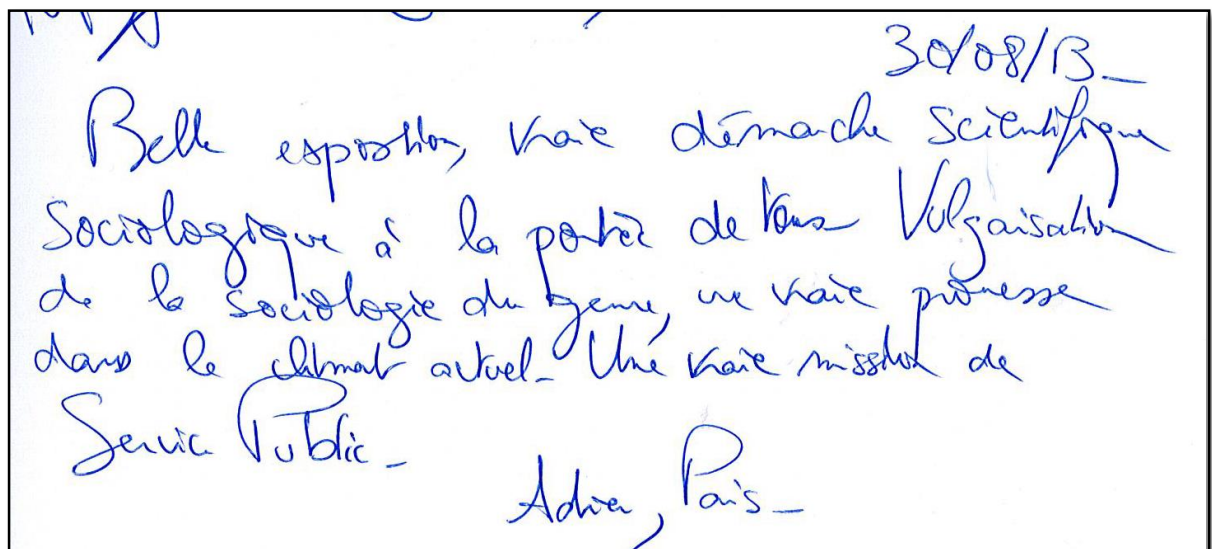 30/08/13_
Belle exposition, vraie démarche Scientifique
Sociologique à la portée de tous_ Vulgarisation
de la sociologie du genre, une vraie prouesse
dans le climat actuel_ Une vraie mission de
Service Public_
Adrien, Paris_